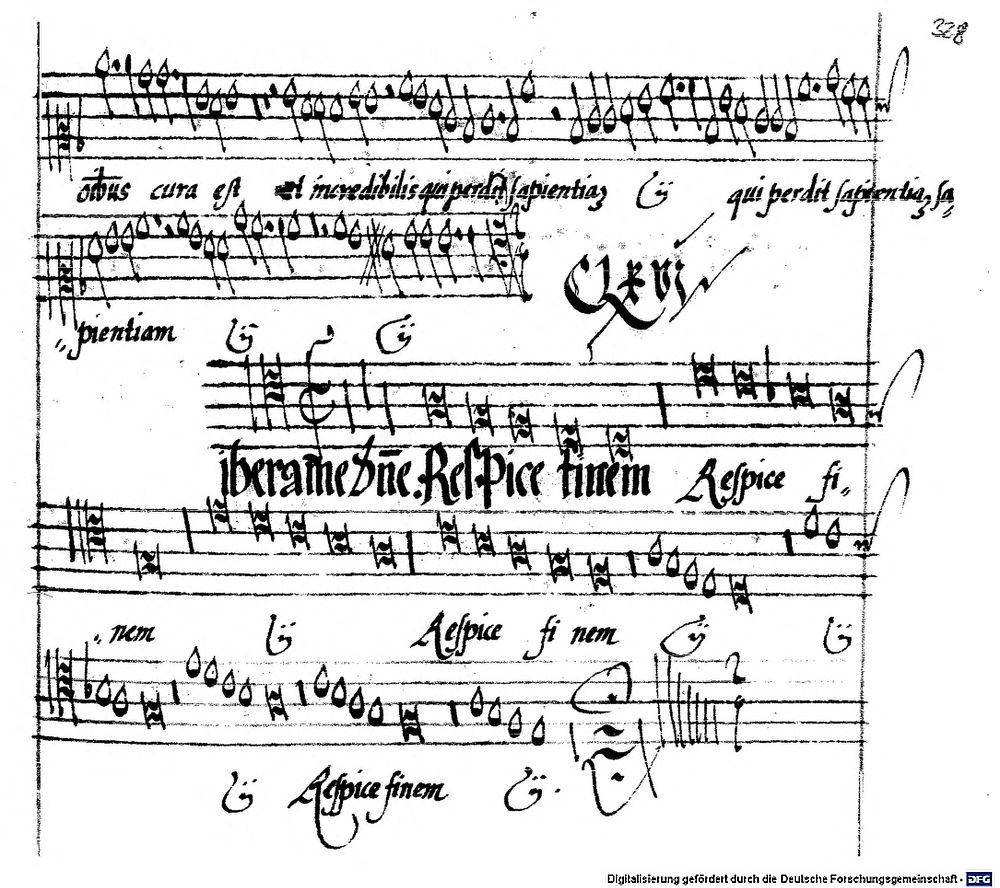 328
oībus cura est et incredibilis qui perdit sapientiaȝ ij qui perdit sapientiaȝ sa„
„pientiam ij ij
CLXVI
iberame dn̄e. Respice finem Respice fi„
„nem ij Respice finem ij ij
ij Respice finem ij.
Digitalisierung gefördert durch die Deutsche Forschungsgemeinschaft - DFG